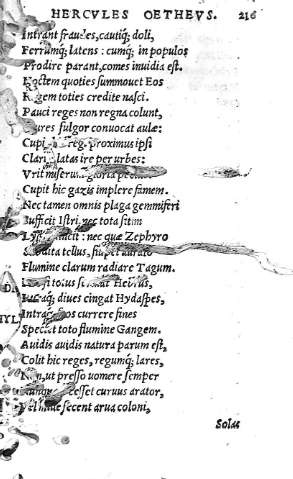 HERCVLES OETHEVS. 216
Intrant fraudes, cautiq; doli,
Ferrumq; latens: cumq; in populos
Prodire parant, comes inuidia est.
Noctem quoties summouet Eos
Regem toties credite nasci.
Pauci reges non regna colunt,
fulgor conuocat aulæ:
Cupit reg. proximus ipsi
latas ire per urbes:
Vrit miserum gloria
Cupit hic gazis implere famem.
Nec tamen omnis plaga gemmiferi
Sufficit Istri, nec tota sitim
: nec quæ Zephyro
tellus,
Flumine clarum radiare Tagum.
totus Hebrus,
diues cingat Hydaspes,
currere fines
Spectet toto flumine Gangem.
Auidis auidis natura parum est,
Colit hic reges, regumq; lares,
Non, ut presso uomere semper
cesset curuus arator,
secent arua coloni,
Solas
HYL